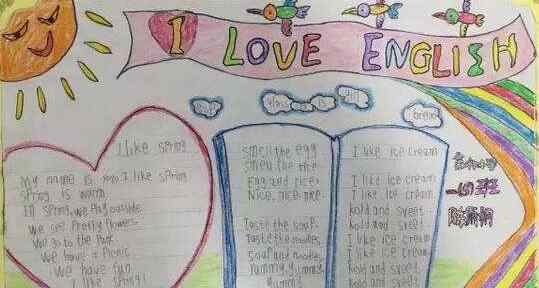 I LOVE ENGLISH
I like spring
My name is I like spring
spring is warm
In spring, we play outside
we see pretty flowers
We go to the Park
We have a Picnic
We have fun
I like spring!
smell the egg
smell the rice
Egg and rice
Nice, nice nice
Taste the soup
taste the noodles
soup and noodles
Yummy yummy
Yummy
I like ice cream
I like ice cream
I like ice cream
kold and sveet
kold and sveet
I like ice cream
I like ice cream
kold and sveet
kold and sveet
bread